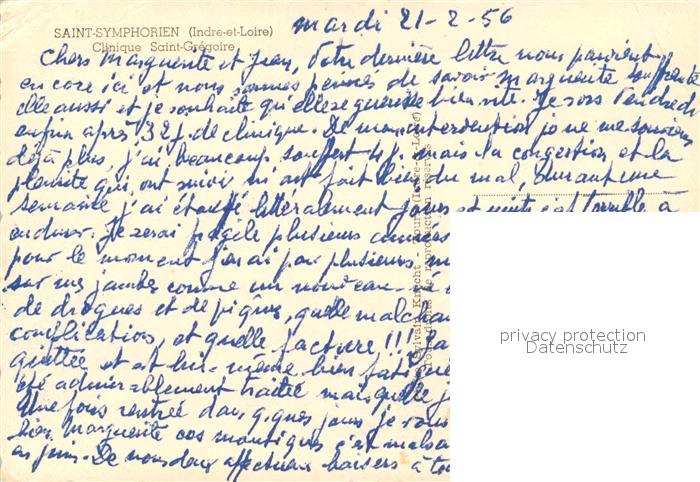 mardi 21-2-56
SAINT-SYMPHORIEN (Indre-et-Loire)
Clinique Saint-Grégoire
Chers Marguerite et Jean, Votre dernière lettre nous parvient
encore ici et nous sommes peinés de savoir Marguerite souffrante
elle aussi et je souhaite qu'elle se guérisse bien vite. Je sors Vendredi
enfin après 32 j. de clinique. De mon intervention je ne me souviens
déjà plus, j'ai beaucoup souffert 4 j. mais la congestion et la
pleurite qui ont suivi m'ont fait bien du mal, durant une
semaine j'ai étouffé littéralement jours et nuits c'est terrible à
endurer. Je serai fragile plusieurs années
pour le moment j'en ai par plusieurs m
sur mes jambes comme un nouveau-né
de drogues et de piqûres, quelle malchan
complication, et quelle facture!!!
quittée et est lui-même bien fatigué
été admirablement traitée mais quelle j
Une fois rentrée dans qques jours je vous
bien Marguerite vos
en juin. De nous deux affectueux baisers à to
Sylvain Knecht - Tours (Indre-et-Loire)
Tous droits de reproduction réservés
privacy protection
Datenschutz